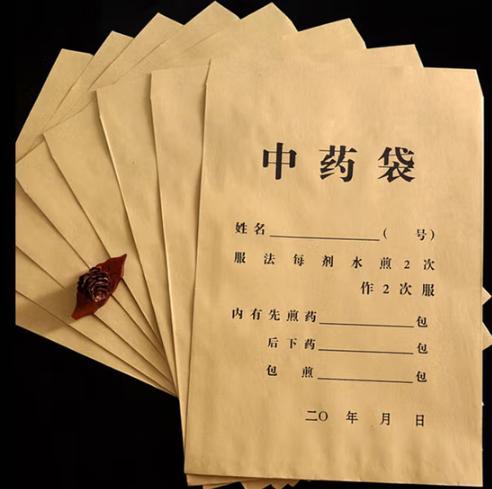 中药袋
姓名__________(  号)
服法每剂水煎2次
作2次服
内有先煎药__________包
后下药__________包
包煎__________包
二〇 年 月 日